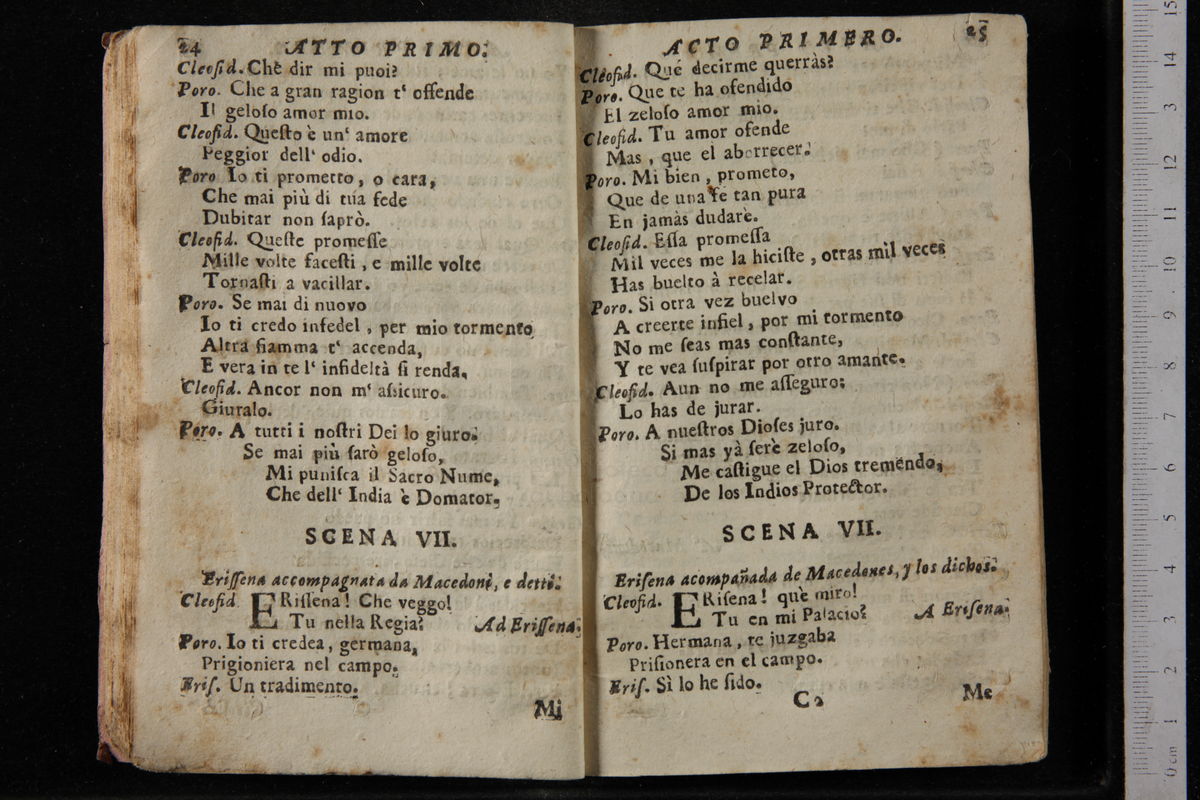 24 ATTO PRIMO.
Cleoſid. Chè dir mi puoi?
Poro. Che a gran ragion t' offende
Il geloſo amor mio.
Cleofid. Queſto è un' amore
Peggior dell' odio.
Poro Io ti prometto, o cara,
Che mai più di tua fede
Dubitar non ſaprò.
Cleofid. Queſte promeſſe
Mille volte faceſti, e mille volte
Tornaſti a vacillar.
Poro. Se mai di nuovo
Io ti credo infedel, per mio tormento
Altra fiamma t' accenda,
E vera in te l' infideltà ſi renda.
Cleofid. Ancor non m' aſsicuro.
Giuralo.
Poro. A tutti i noſtri Dei lo giuro.
Se mai più ſarò geloſo,
Mi puniſca il Sacro Nume,
Che dell' India è Domator.
SCENA VII.
Eriſſena accompagnata da Macedoni, e detti.
Cleofid. ERiſſena! Che veggo!
Tu nella Regia? Ad Eriſſena.
Poro. Io ti credea, germana,
Prigioniera nel campo.
Eriſ. Un tradimento.
Mi
ACTO PRIMERO. 25
Cleofid. Qué decirme querràs?
Poro. Que te ha ofendido
El zeloſo amor mio.
Cleofid. Tu amor ofende
Mas, que el aborrecer.
Poro. Mi bien, prometo,
Que de una fé tan pura
En jamàs dudarè.
Cleofid. Eſſa promeſſa
Mil veces me la hiciſte, otras mil veces
Has buelto à recelar.
Poro. Si otra vez buelvo
A creerte infiel, por mi tormento
No me ſeas mas conſtante,
Y te vea ſuſpirar por otro amante.
Cleofid. Aun no me aſſeguro:
Lo has de jurar.
Poro. A nueſtros Dioſes juro.
Si mas yà ſerè zeloſo,
Me caſtigue el Dios tremendo,
De los Indios Protector.
SCENA VII.
Eriſena acompañada de Macedones, y los dichos.
Cleofid. ERiſena! què miro!
Tu en mi Palacio? A Eriſena.
Poro. Hermana, te juzgaba
Priſionera en el campo.
Eriſ. Sì lo he ſido.
C2 Me
0 cm 1 2 3 4 5 6 7 8 9 10 11 12 13 14 15